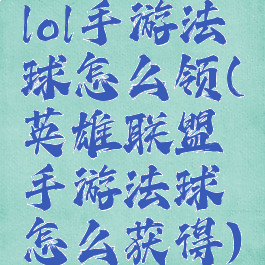 lol手游法
球怎么领(
英雄联盟
手游法球
怎么获得)